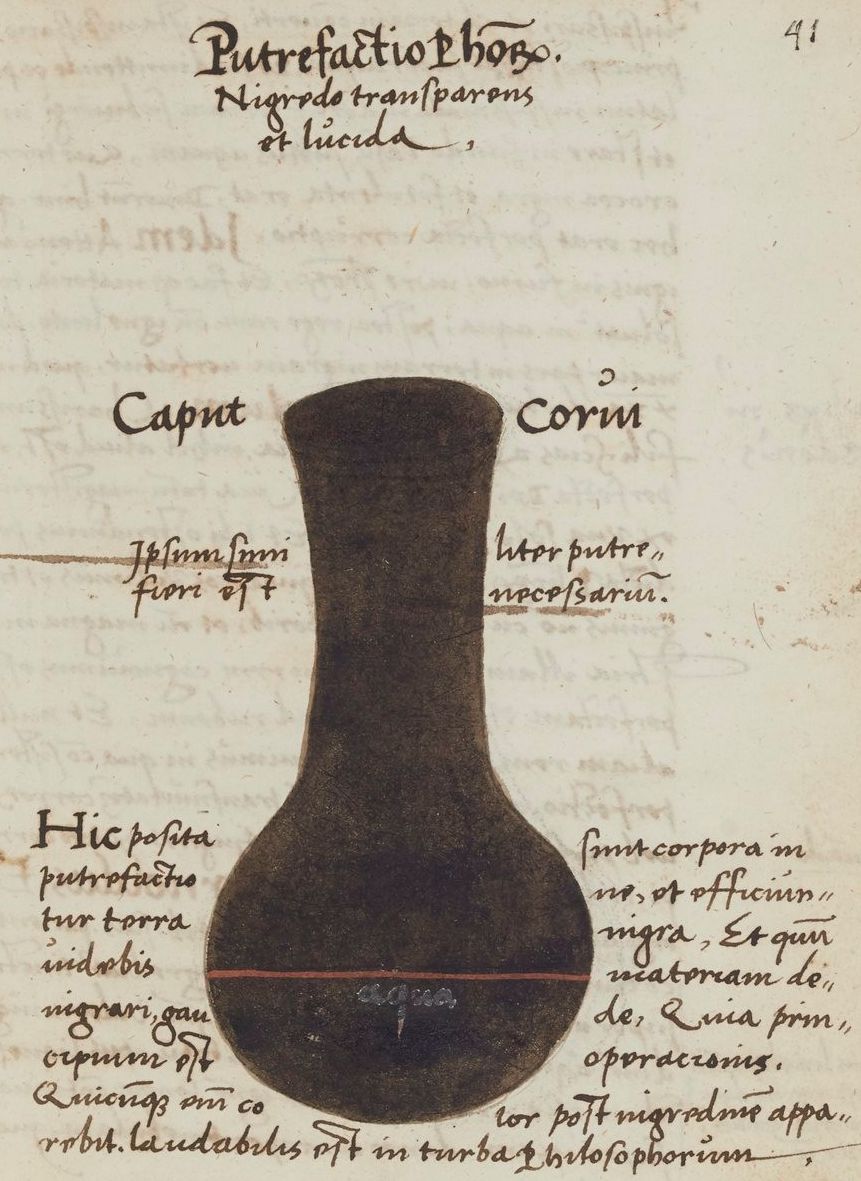 41
Putrefactio Phoꝝ.
Nigredo transparens
et lucida,
Caput Corvi
Ipsum simi liter putre„
fieri est necessariū.
Hic posita sunt corpora in
putrefactio ne, et efficiun„
tur terra nigra, Et quū
uidebis materiam de„
nigrari, gau de, Quia prin„
cipium est operacionis.
aqua
Quicūqꝫ em̄ co lor post nigredinē appa„
rebit. laudabilis est in turba Philosophorum.